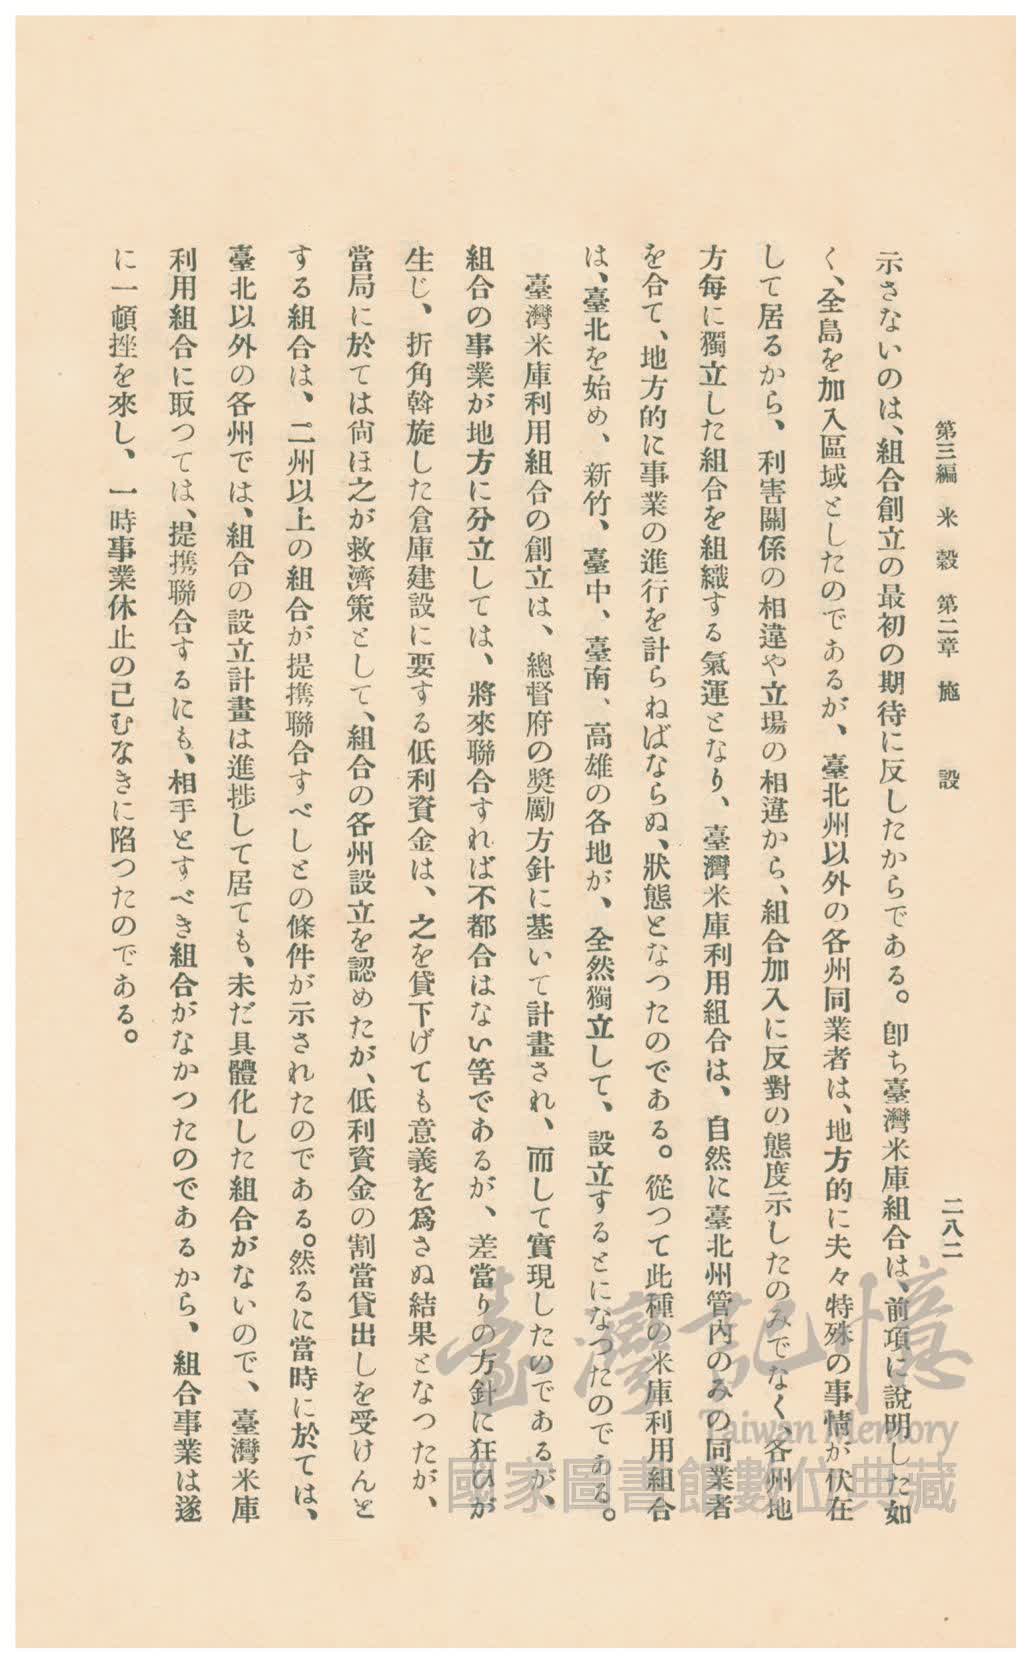 第三編 米穀 第二章 施設
二八二
示さないのは、組合創立の最初の期待に反したからである。卽ち臺灣米庫組合は、前項に説明した如
く、全島を加入區域としたのであるが、臺北州以外の各州同業者は、地方的に夫々特殊の事情が伏在
して居るから、利害關係の相違や立場の相違から、組合加入に反對の態度示したのみでなく、各州地
方每に獨立した組合を組織する氣運となり、臺灣米庫利用組合は、自然に臺北州管內のみの同業者
を合て、地方的に事業の進行を計らねばならぬ、狀態となつたのである。從つて此種の米庫利用組合
は、臺北を始め、新竹、臺中、臺南、高雄の各地が、全然獨立して、設立するとになつたのである。
臺灣米庫利用組合の創立は、總督府の奬勵方針に基いて計畫され、而して實現したのであるが、
組合の事業が地方に分立しては、將來聯合すれば不都合はない筈であるが、差當りの方針に狂ひが
生じ、折角斡旋した倉庫建設に要する低利資金は、之を貸下げても意義を爲さぬ結果となつたが、
當局に於ては尙ほ之が救濟策として、組合の各州設立を認めたが、低利資金の割當貸出しを受けんと
する組合は、二州以上の組合が提携聯合すべしとの條件が示されたのである。然るに當時に於ては、
臺北以外の各州では、組合の設立計畫は進捗して居ても、未だ具體化した組合がないので、臺灣米庫
利用組合に取つては、提携聯合するにも、相手とすべき組合がなかつたのであるから、組合事業は遂
に一頓挫を來し、一時事業休止の己むなきに陷つたのである。
臺灣記憶
Taiwan Memory
國家圖書館數位典藏